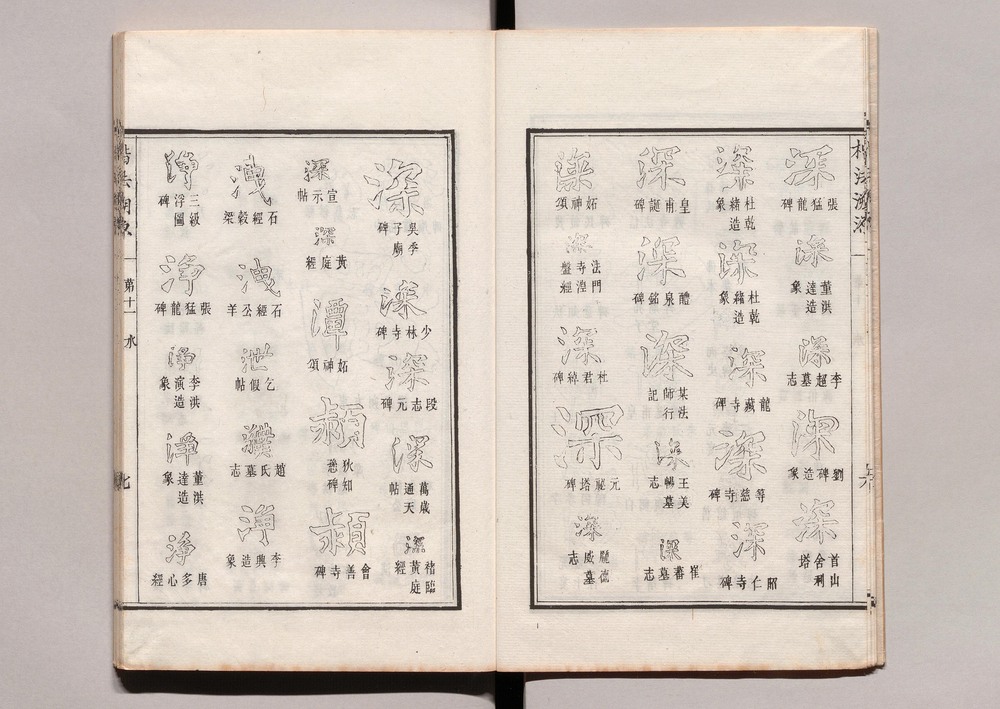 楷法溯源
深 張猛龍碑
深 董洪達造象
深 李超墓志
深 劉碑造象
深 首山舍利塔
深 杜乾緒造象
深 杜乾緒造象
深 龍藏寺碑
深 等慈寺碑
深 昭仁寺碑
深 皇甫誕碑
深 醴泉銘碑
深 某法師行記
深 王美暢墓志
深 崔蕃墓志
深 妬神頌
深 法門寺湼盤經
深 杜君綽碑
深 元祕塔碑
深 德威墓志
深 吳季子廟碑
深 少林寺碑
深 段志元碑
深 萬歲通天帖
深 褚臨黃庭經
深 宣示帖
深 黃庭經
潭 妬神頌
狄知愻碑
會善寺碑
洩 石經穀梁
洩 石經公羊
泄 乞假帖
趙氏墓志
淨 李興造象
淨 三級浮圖碑
淨 張猛龍碑
淨 李洪演造象
淨 董洪達造象
淨 唐多心經
楷法溯源 第十一 水